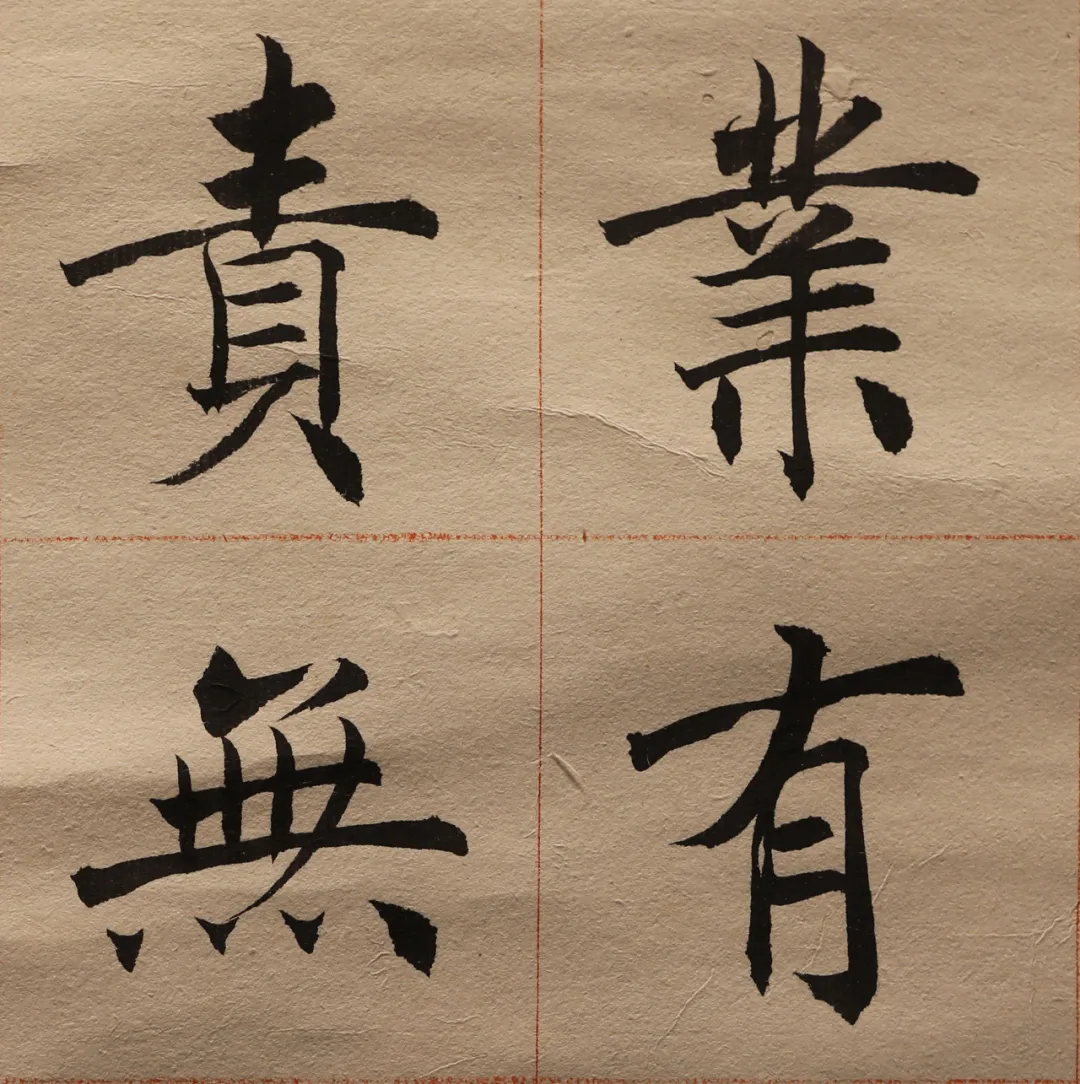 業有
責無